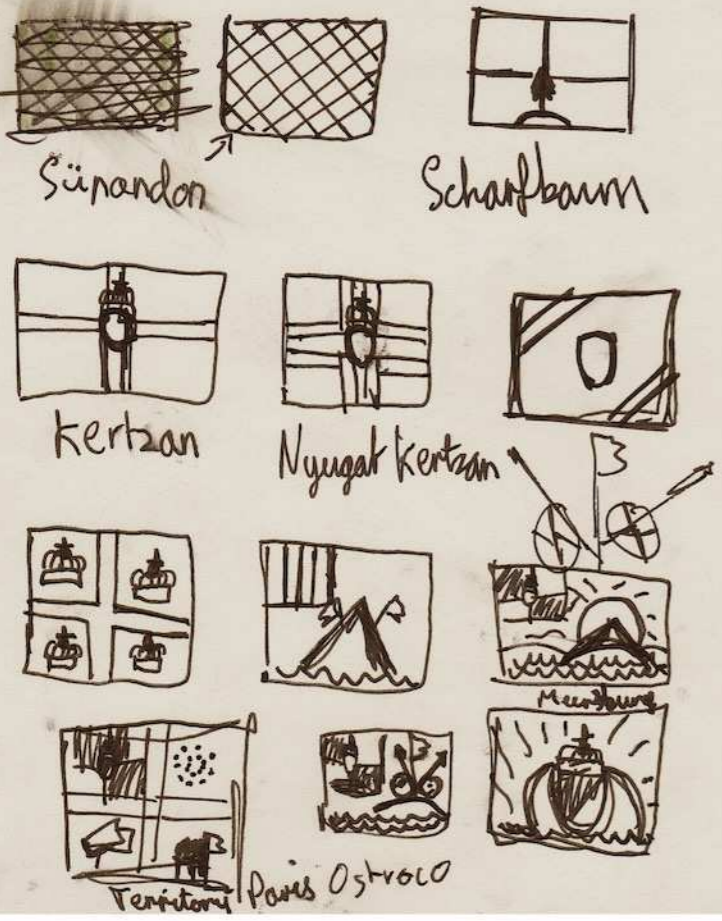 Sünandon
Scharfbaum
Kertzan
Nyugat Kertzan
Territory Paris Ostroco